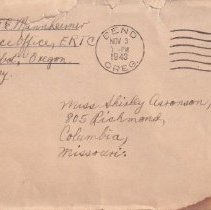 E. Mannheimer
Office, ERTC
Oregon
BEND
NOV 3
PM
1943
OREG.
Miss Shirley Aronson,
805 Richmond,
Columbia,
Missouri.